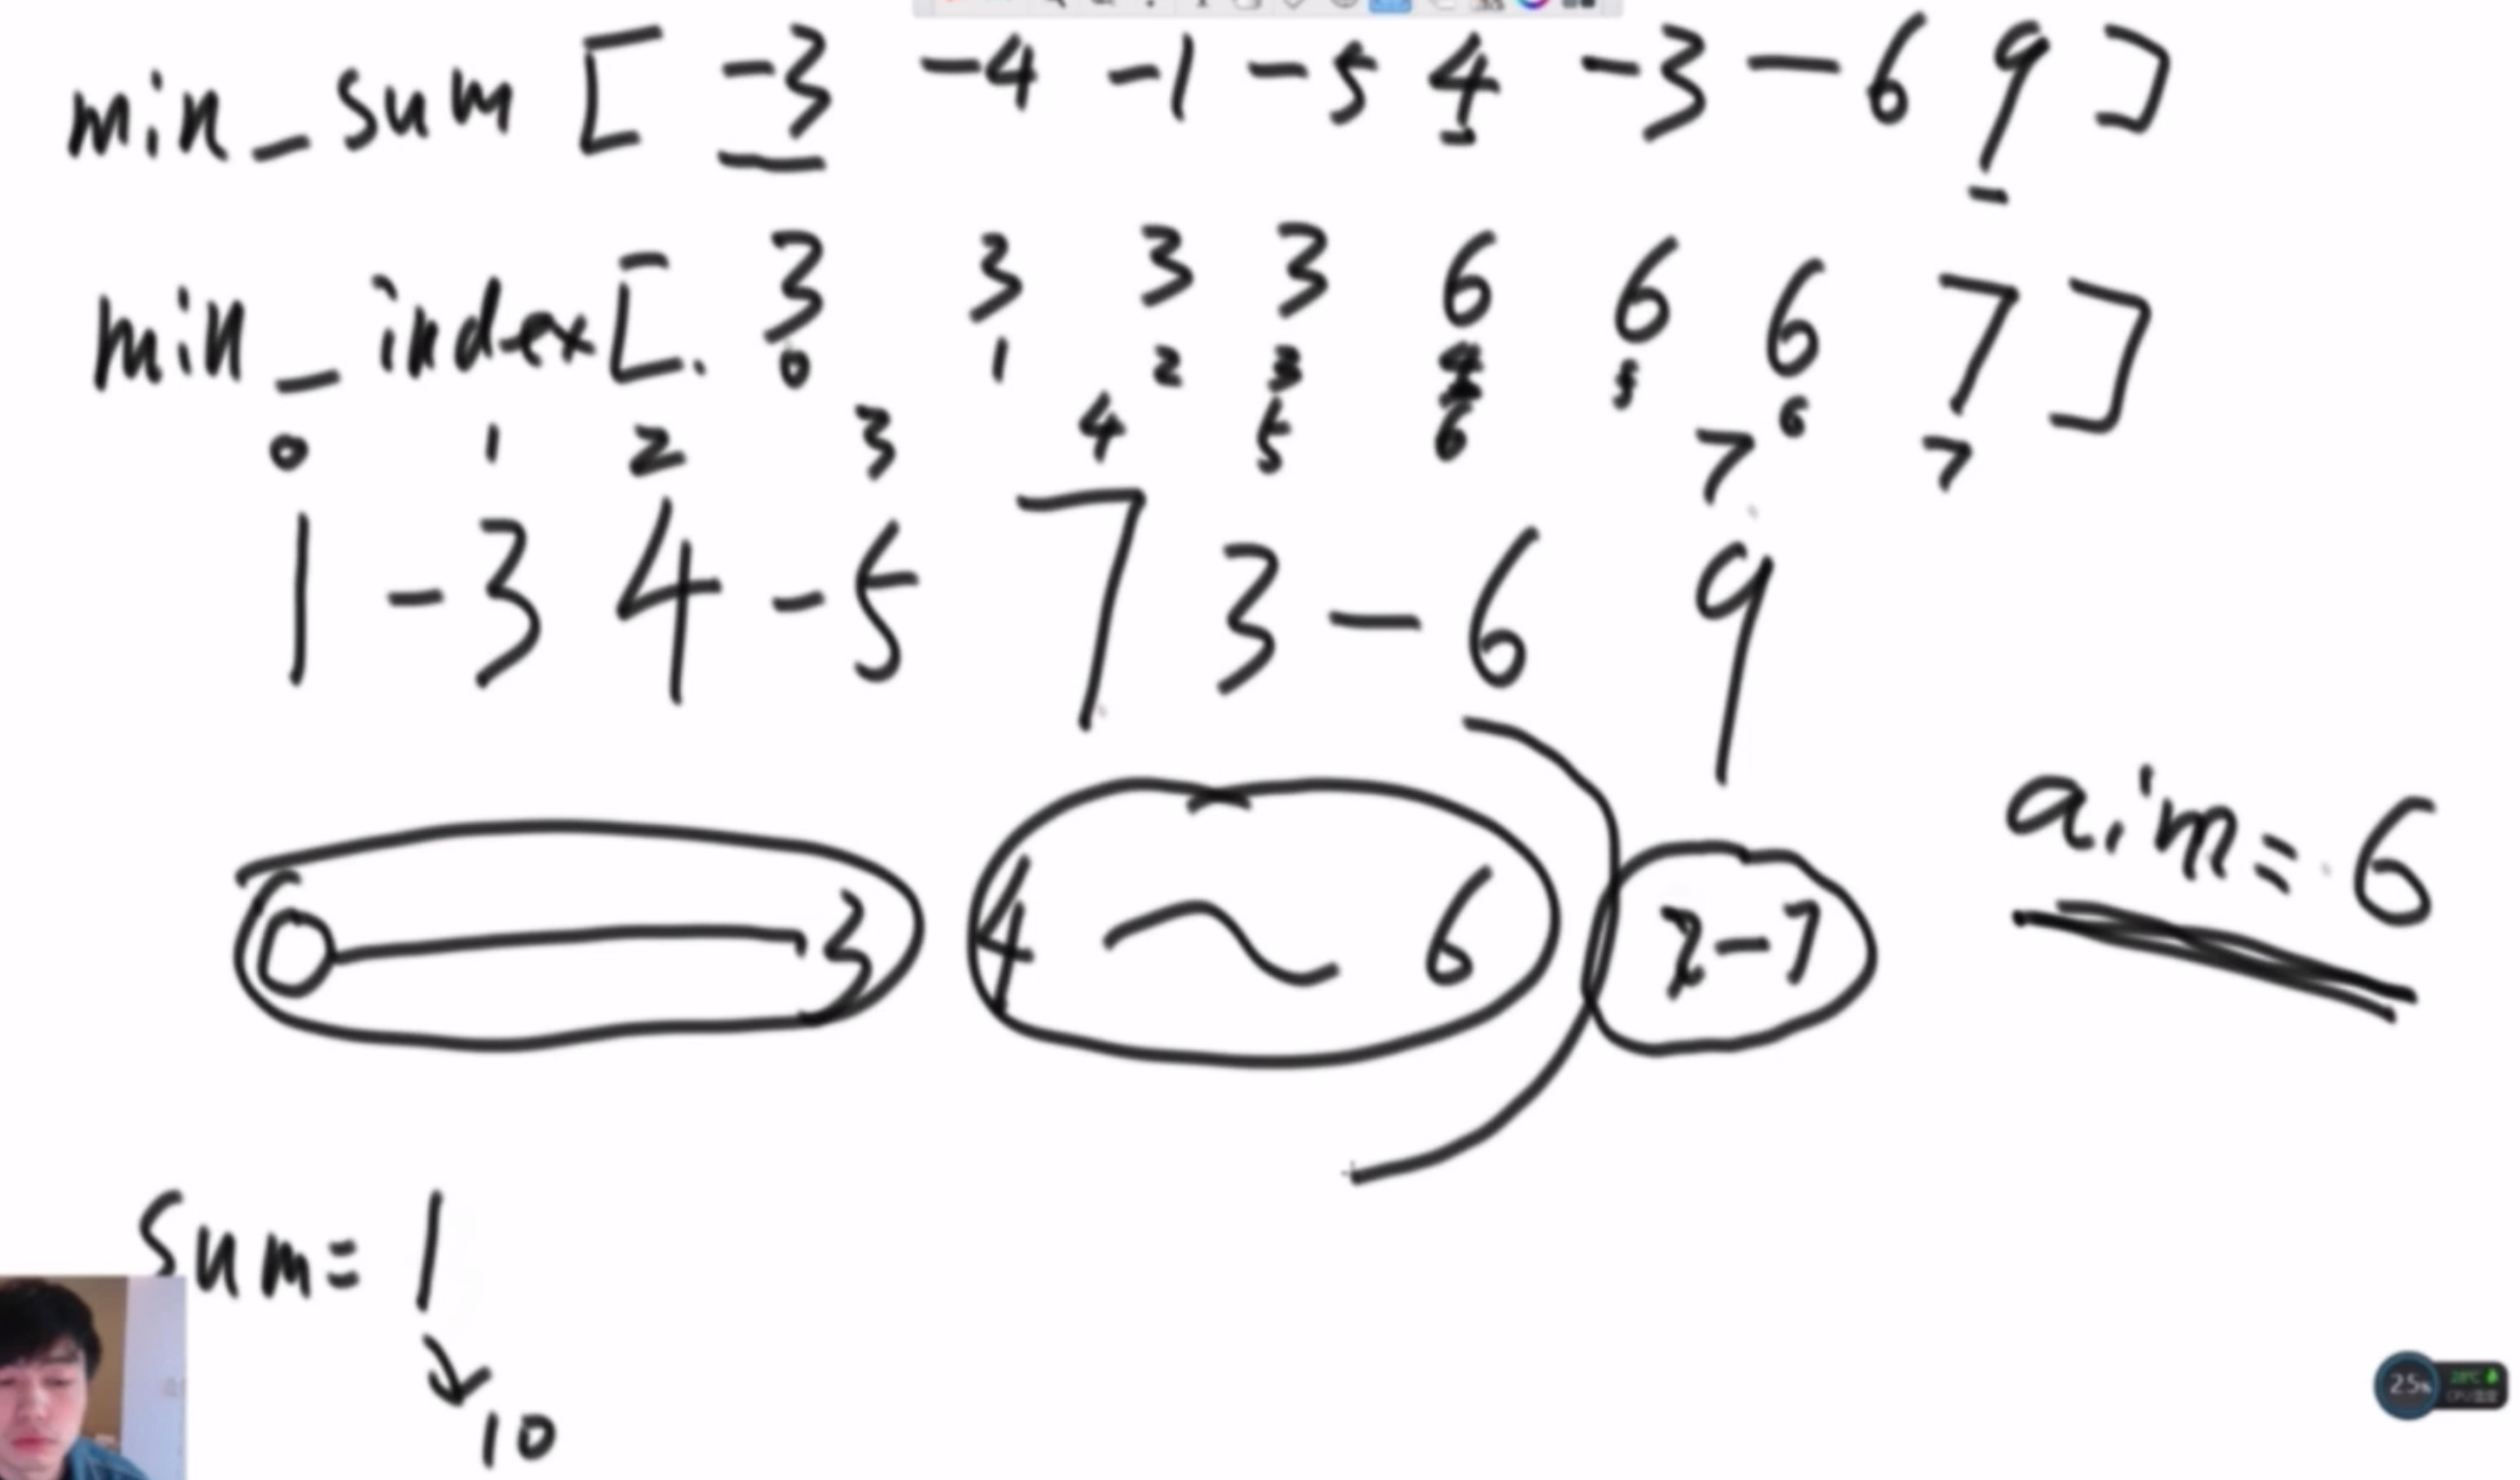 min_sum [ -3 -4 -1 -5 4 -3 -6 9 ]
min_index [ 3 3 3 3 6 6 6 7 ]
0 1 2 3 4 5 6 7
0 1 2 3 4 5 6 7
1 -3 4 -5 7 3 -6 9
0 3 4 ~ 6 7-7
aim=6
Sum=1
10
25%
28°C
CPU温度